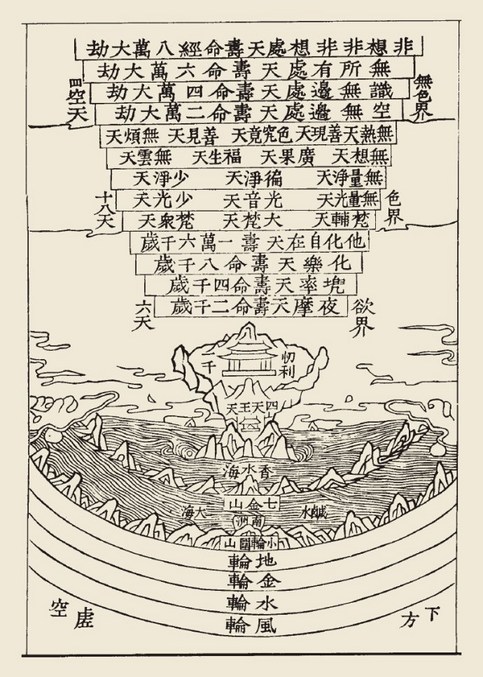 非想非非想處天壽命經八萬大劫
無所有處天壽命六萬大劫
無色界
識無邊處天壽命四萬大劫
四空天
空無邊處天壽命二萬大劫
無熱天 善現天 色究竟天 善見天 無煩天
無想天 廣果天 福生天 無雲天
無量淨天 徧淨天 少淨天
色界
無量光天 光音天 少光天
十八天
梵輔天 大梵天 梵衆天
他化自在天壽一萬六千歲
化樂天壽命八千歲
兜率天壽命四千歲
欲界
夜摩天壽命二千歲
六天
忉利
千
四天王天
香水海
七金山
鹹水
大海
南洲
小輪圍山
地輪
金輪
水輪
風輪
下方
虛空